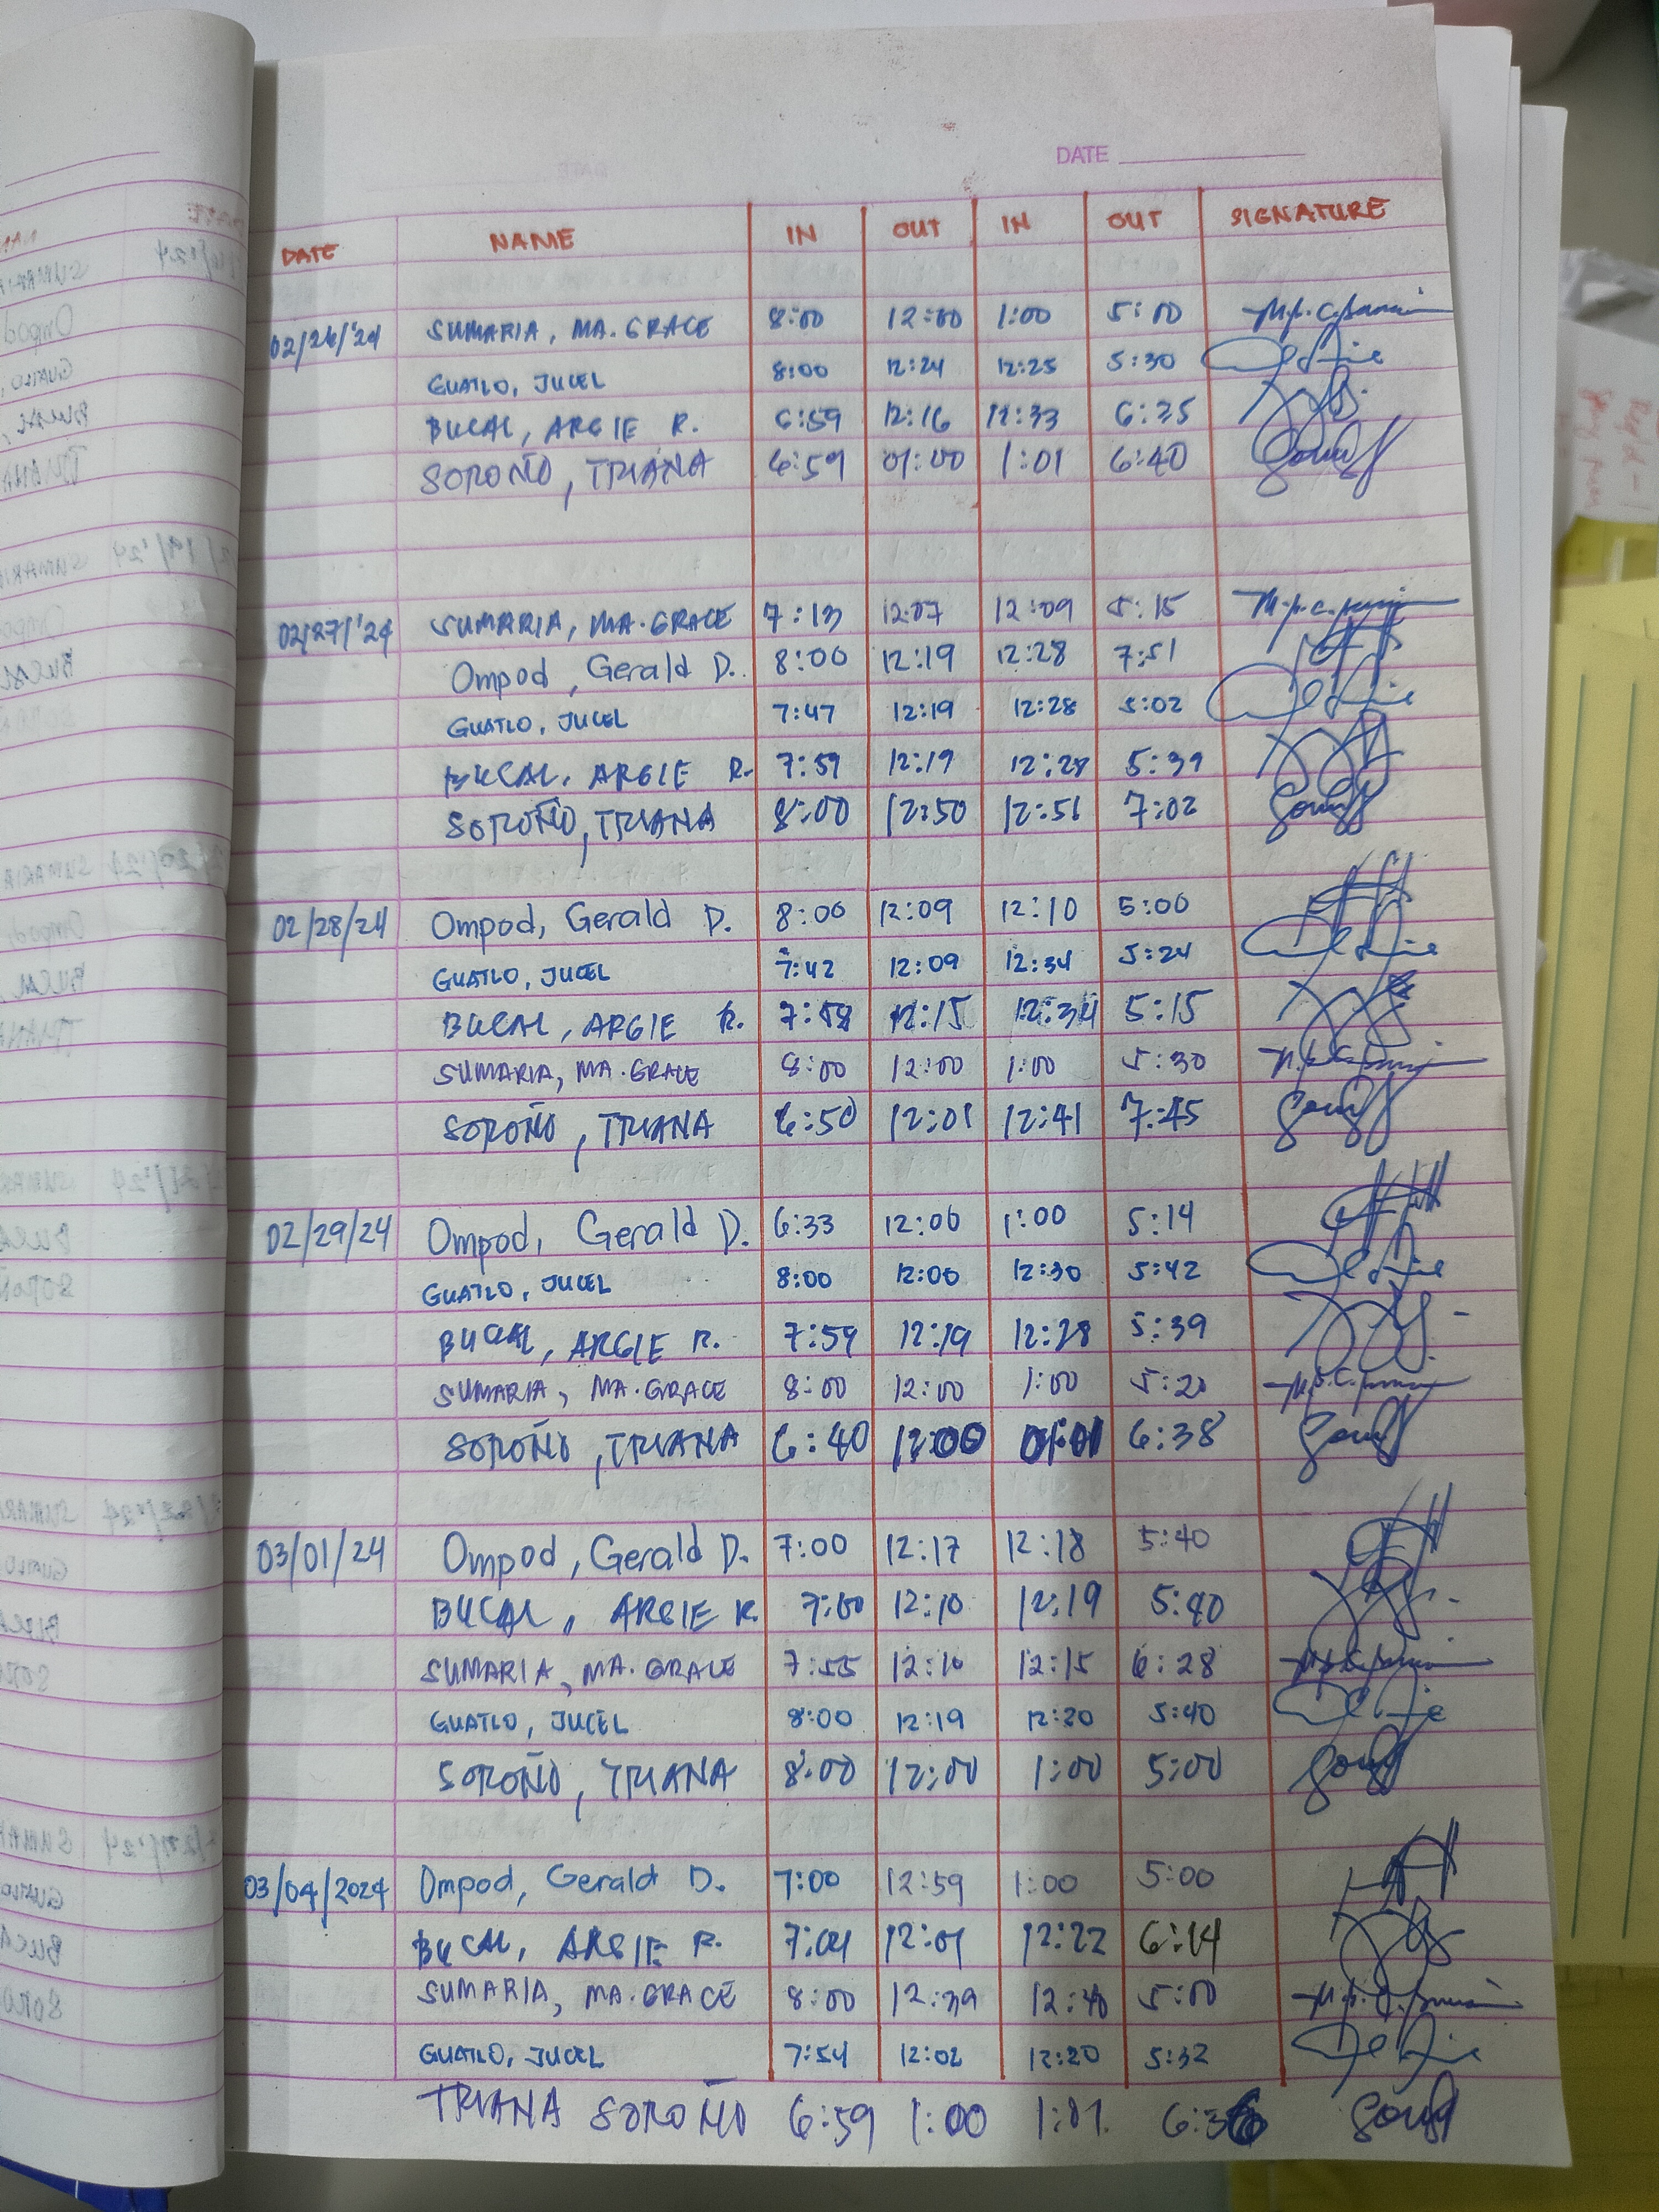 DATE
DATE NAME IN OUT IN OUT SIGNATURE
02/26/'24 SUMARIA, MA. GRACE 8:00 12:00 1:00 5:00
GUATLO, JUCEL 8:00 12:24 12:25 5:30
BUCAL, ARGIE R. 6:59 12:16 12:33 6:35
SOROÑO, TRIANA 6:59 01:00 1:01 6:40
02/27/'24 SUMARIA, MA. GRACE 7:13 12:07 12:09 5:15
Ompod, Gerald D. 8:00 12:19 12:28 7:51
GUATLO, JUCEL 7:47 12:19 12:28 5:02
BUCAL, ARGIE R. 7:59 12:19 12:28 5:39
SOROÑO, TRIANA 8:00 12:50 12:51 7:02
02/28/24 Ompod, Gerald D. 8:00 12:09 12:10 5:00
GUATLO, JUCEL 7:42 12:09 12:34 5:24
BUCAL, ARGIE R. 7:58 12:15 12:34 5:15
SUMARIA, MA. GRACE 8:00 12:00 1:00 5:30
SOROÑO, TRIANA 6:50 12:01 12:41 7:45
02/29/24 Ompod, Gerald D. 6:33 12:00 1:00 5:14
GUATLO, JUCEL 8:00 12:00 12:30 5:42
BUCAL, ARGIE R. 7:59 12:19 12:28 5:39
SUMARIA, MA. GRACE 8:00 12:00 1:00 5:20
SOROÑO, TRIANA 6:40 12:00 01:01 6:38
03/01/24 Ompod, Gerald D. 7:00 12:17 12:18 5:40
BUCAL, ARGIE R. 7:00 12:10 12:19 5:40
SUMARIA, MA. GRACE 7:55 12:10 12:15 6:28
GUATLO, JUCEL 8:00 12:19 12:20 5:40
SOROÑO, TRIANA 8:00 12:00 1:00 5:00
03/04/2024 Ompod, Gerald D. 7:00 12:59 1:00 5:00
BUCAL, ARGIE R. 7:04 12:01 12:22 6:14
SUMARIA, MA. GRACE 8:00 12:39 12:40 5:00
GUATLO, JUCEL 7:54 12:02 12:20 5:32
TRIANA SOROÑO 6:59 1:00 1:01